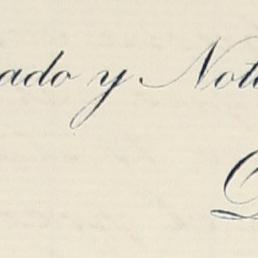 ado y Not